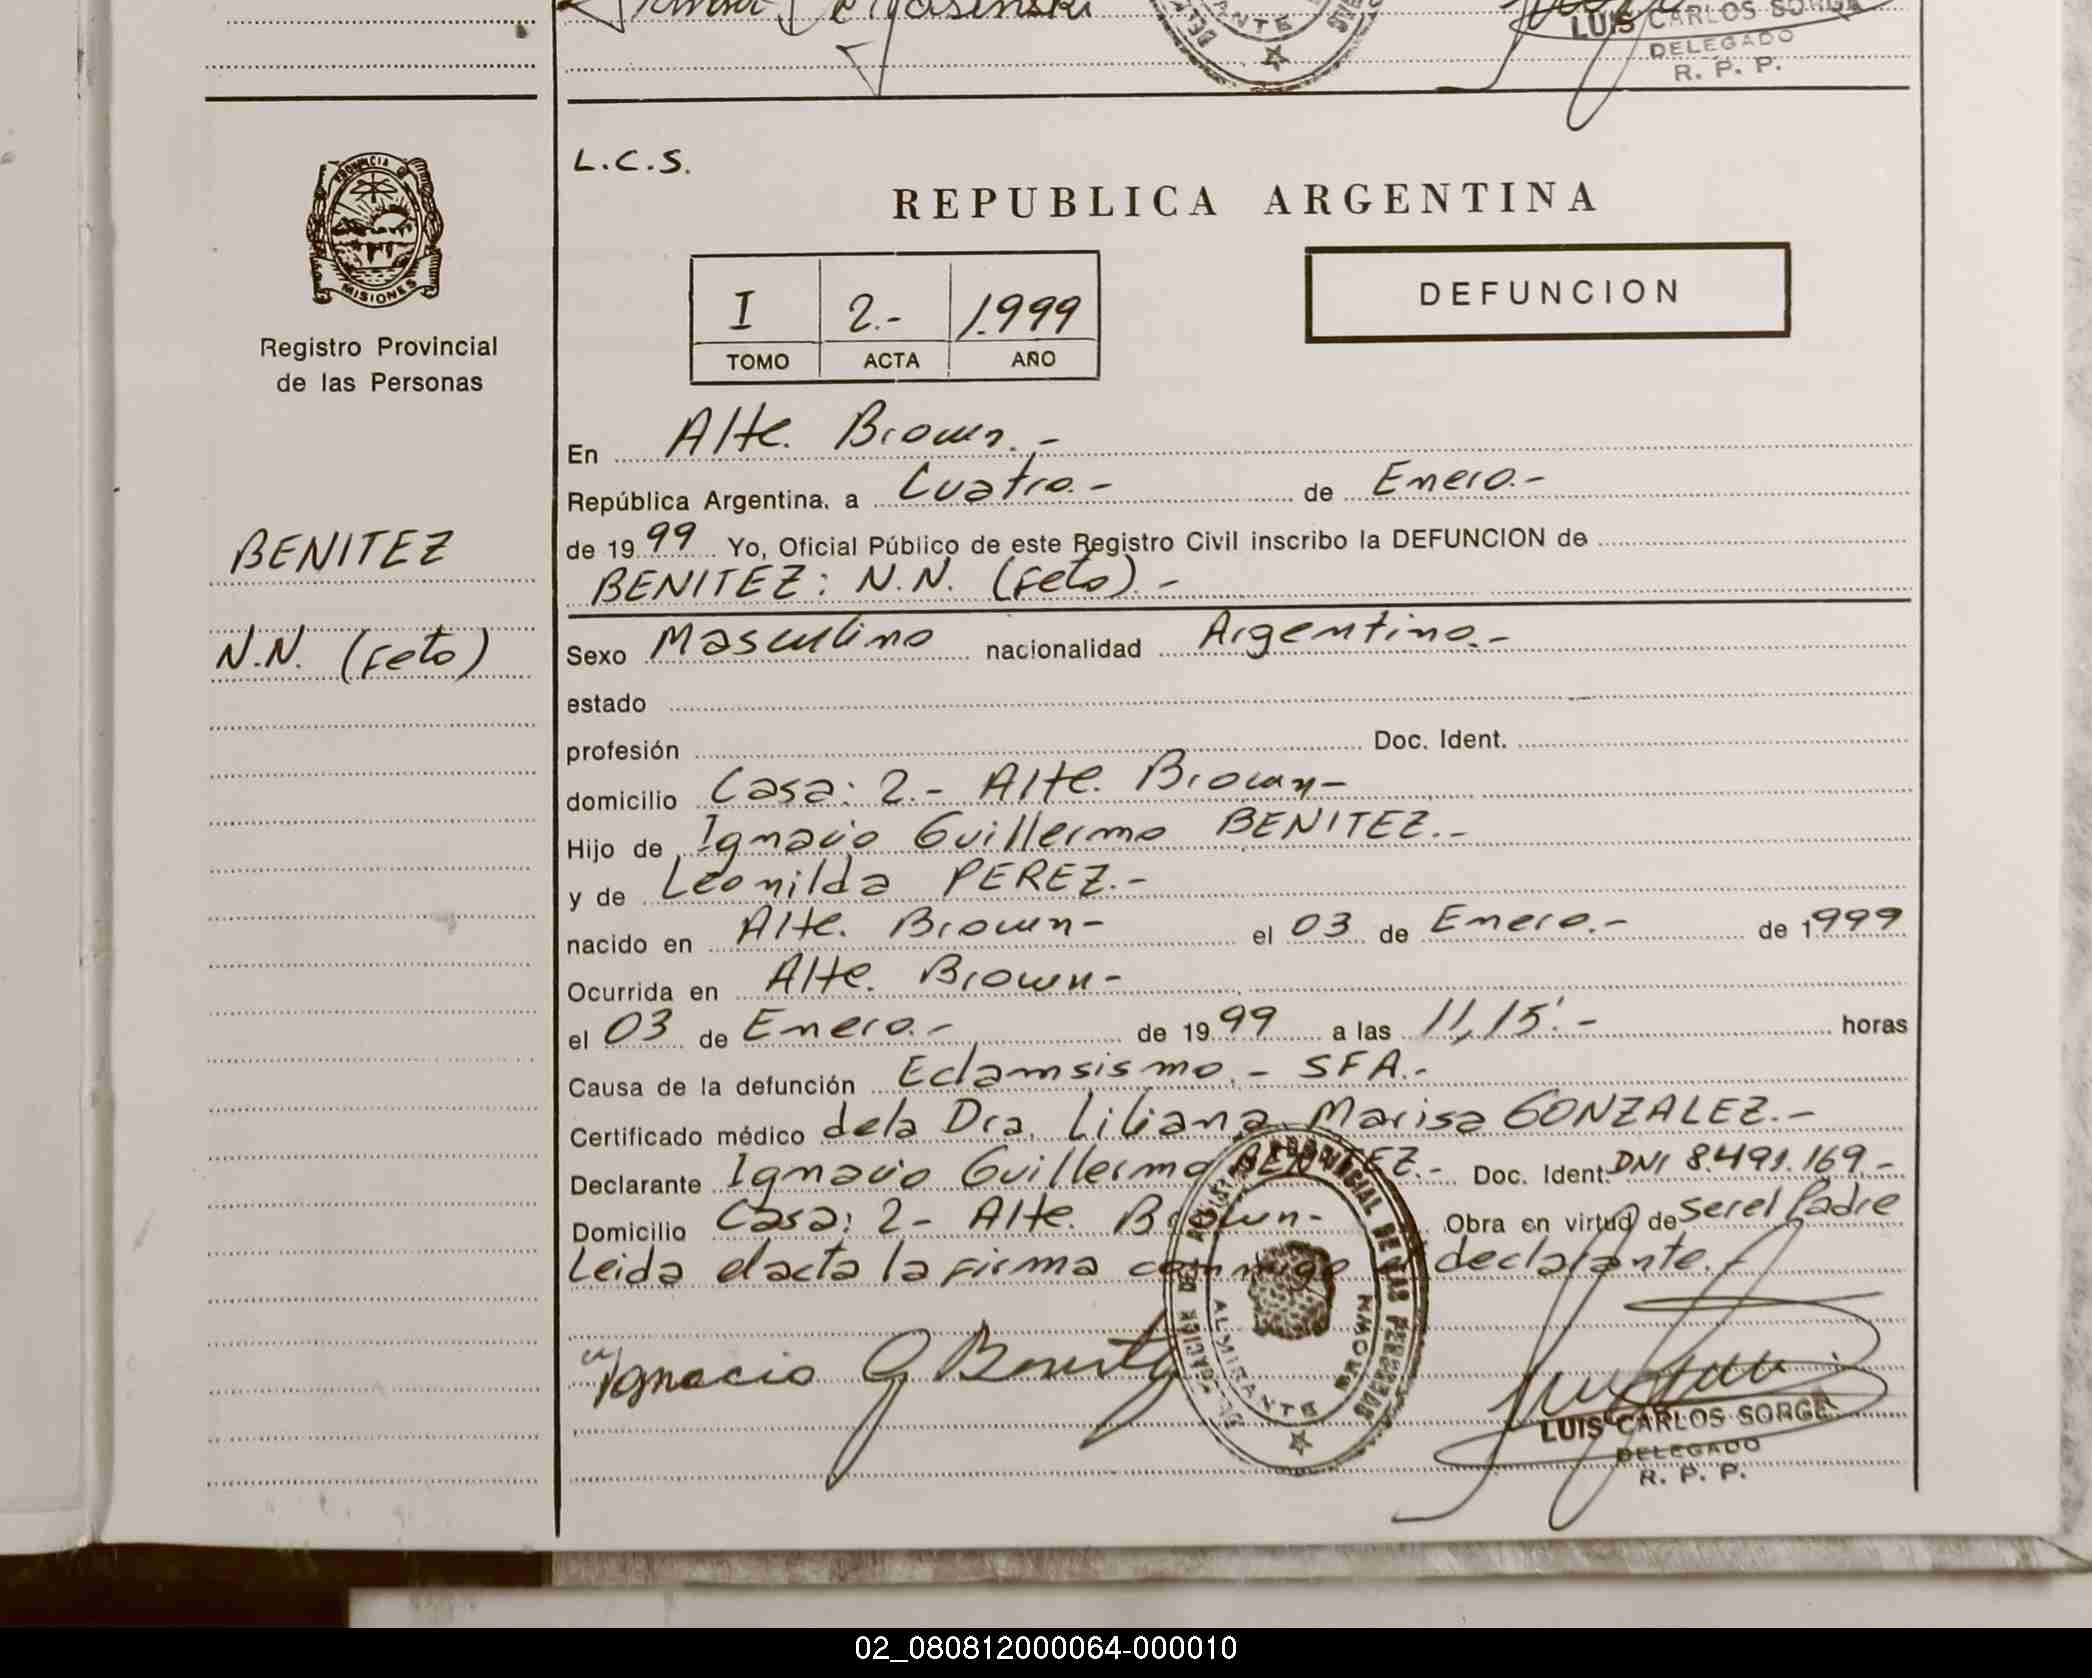 LUIS CARLOS SORGE
DELEGADO
R. P. P.
PROVINCIA
MISIONES
Registro Provincial
de las Personas
BENITEZ
N.N. (Feto)
L.C.S.
REPUBLICA ARGENTINA
I 2.- 1.999
TOMO ACTA AÑO
DEFUNCION
En Alte. Brown.-
República Argentina, a Cuatro.- de Enero.-
de 1999 Yo, Oficial Público de este Registro Civil inscribo la DEFUNCION de
BENITEZ: N.N. (Feto).-
Sexo Masculino nacionalidad Argentino.-
estado
profesión Doc. Ident.
domicilio Casa: 2.- Alte. Brown-
Hijo de Ignacio Guillermo BENITEZ.-
y de Leonilda PEREZ.-
nacido en Alte. Brown- el 03 de Enero.- de 1999
Ocurrida en Alte. Brown-
el 03 de Enero.- de 1999 a las 11,15'.- horas
Causa de la defunción Eclamsismo.- SFA.-
Certificado médico dela Dra. Liliana Marisa GONZALEZ.-
Declarante Ignacio Guillermo BENITEZ.- Doc. Ident. DNI 8.491.169.-
Domicilio Casa: 2- Alte. Brown- Obra en virtud de serel Padre
Leida elacta la firma conmigo el declarante.-
Ignacio G Benitez
ALMIRANTE BROWN
LUIS CARLOS SORGE
DELEGADO
R. P. P.
02_080812000064-000010